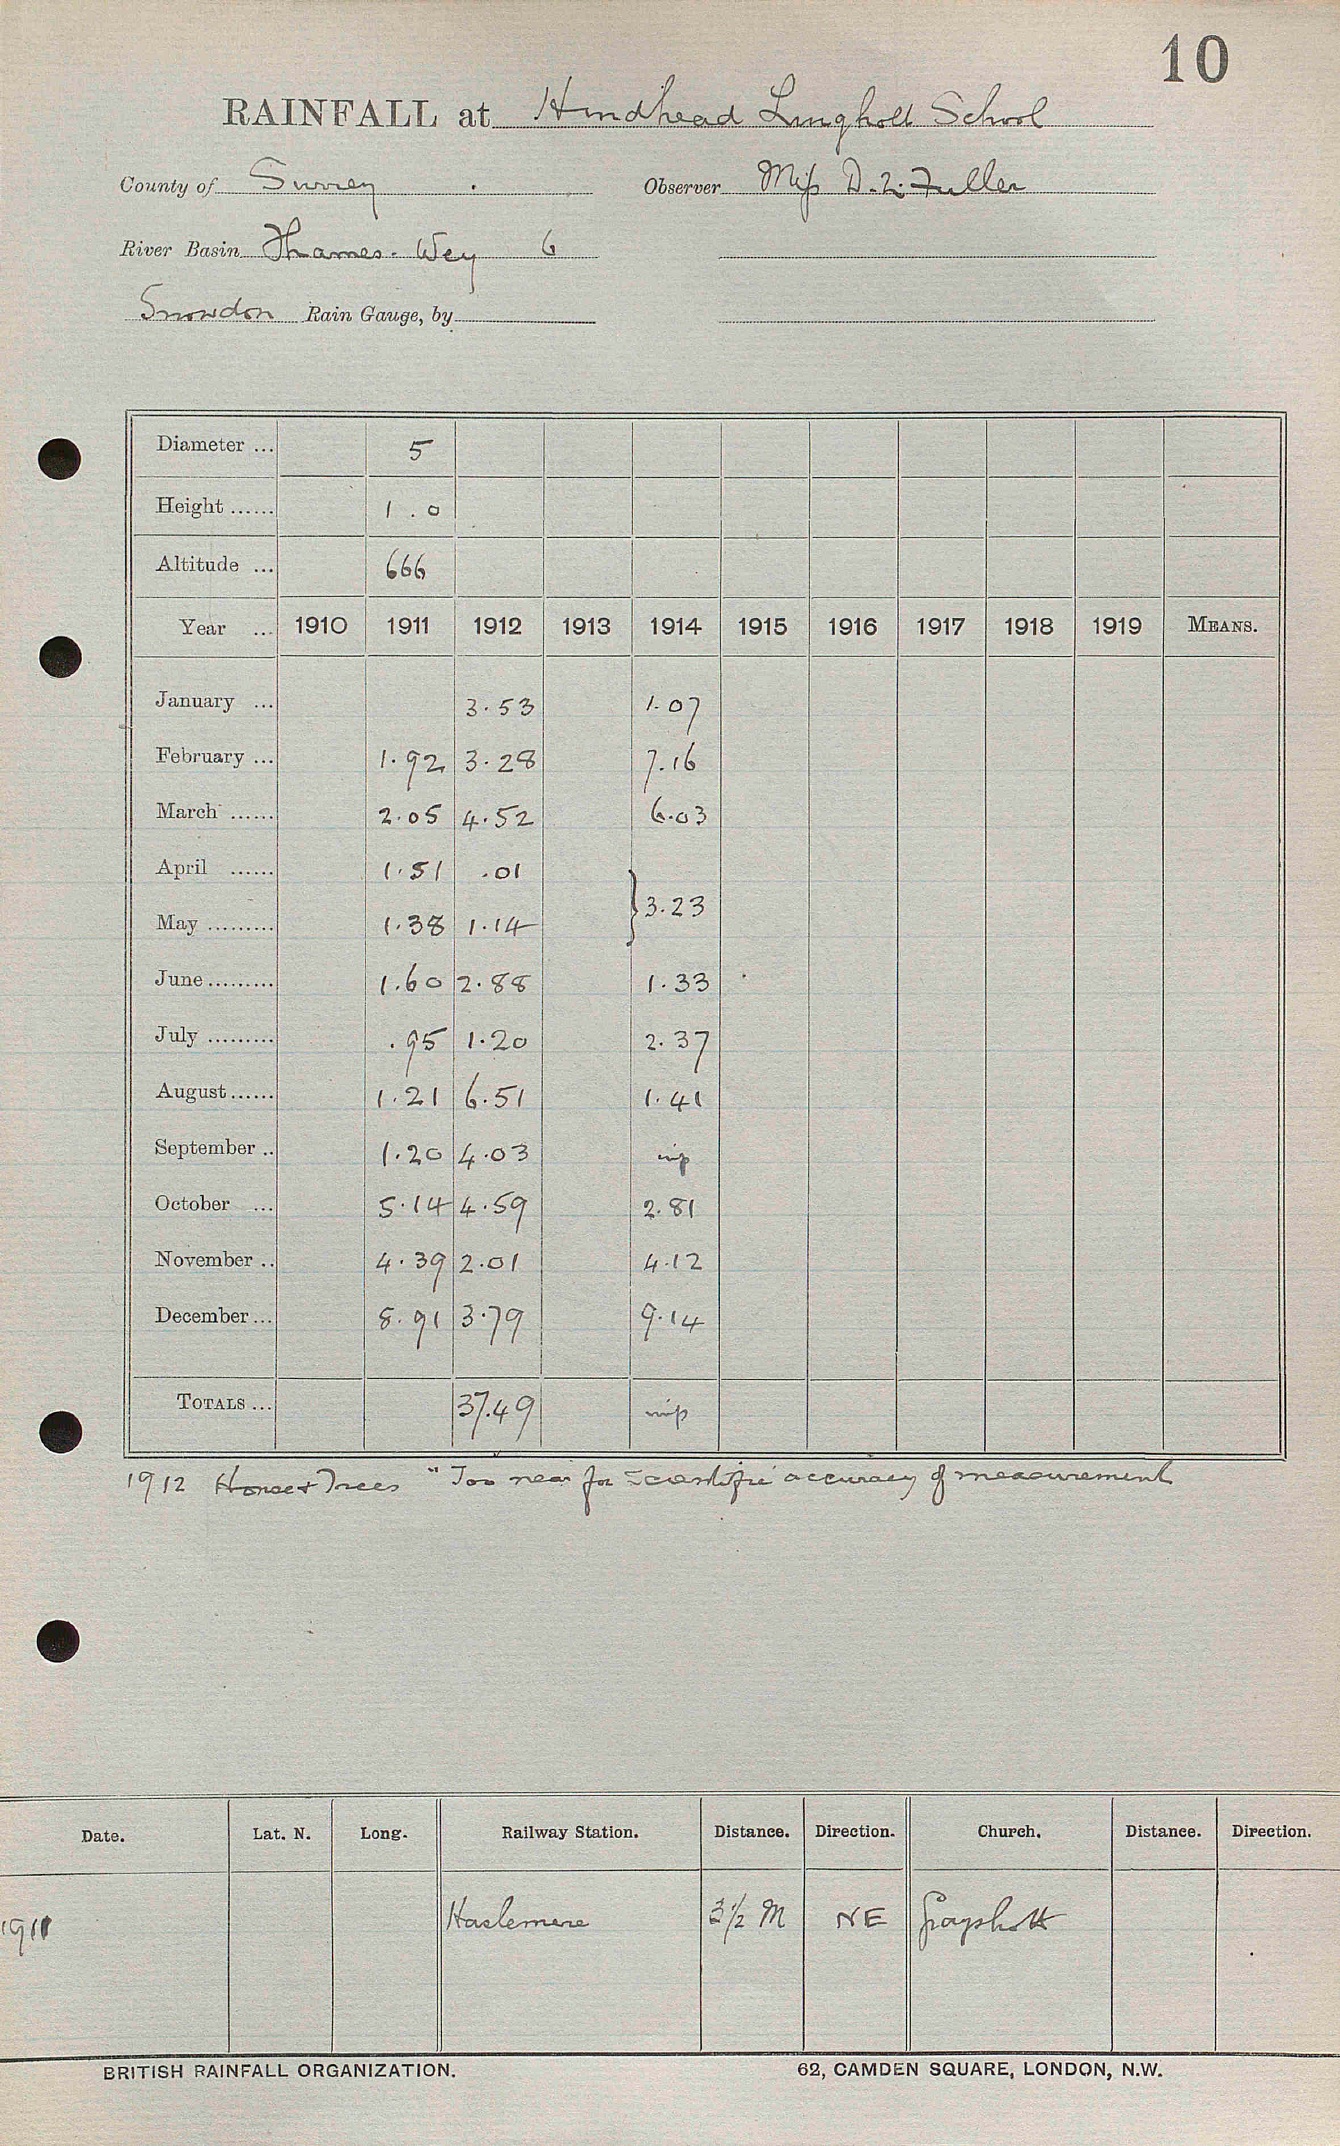 10
RAINFALL at Hindhead Lingholt School
County of Surrey Observer Miss D. L. Fuller
River Basin Thames - Wey 6
Snowdon Rain Gauge, by
Diameter ... 5
Height ...... 1 . 0
Altitude ... 666
Year ... 1910 1911 1912 1913 1914 1915 1916 1917 1918 1919 MEANS.
January ... 3.53 1.07
February ... 1.92 3.28 7.16
March ...... 2.05 4.52 6.03
April ...... 1.51 .01
} 3.23
May ......... 1.38 1.14
June ......... 1.60 2.88 1.33
July ......... .95 1.20 2.37
August ...... 1.21 6.51 1.41
September .. 1.20 4.03
October ... 5.14 4.59 2.81
November .. 4.39 2.01 4.12
December ... 8.91 3.79 9.14
TOTALS ... 37.49
1912 House & Trees "Too near for scientific accuracy of measurement
Date. Lat. N. Long. Railway Station. Distance. Direction. Church. Distance. Direction.
1911 Haslemere 3½ M NE Grayshott
BRITISH RAINFALL ORGANIZATION. 62, CAMDEN SQUARE, LONDON, N.W.